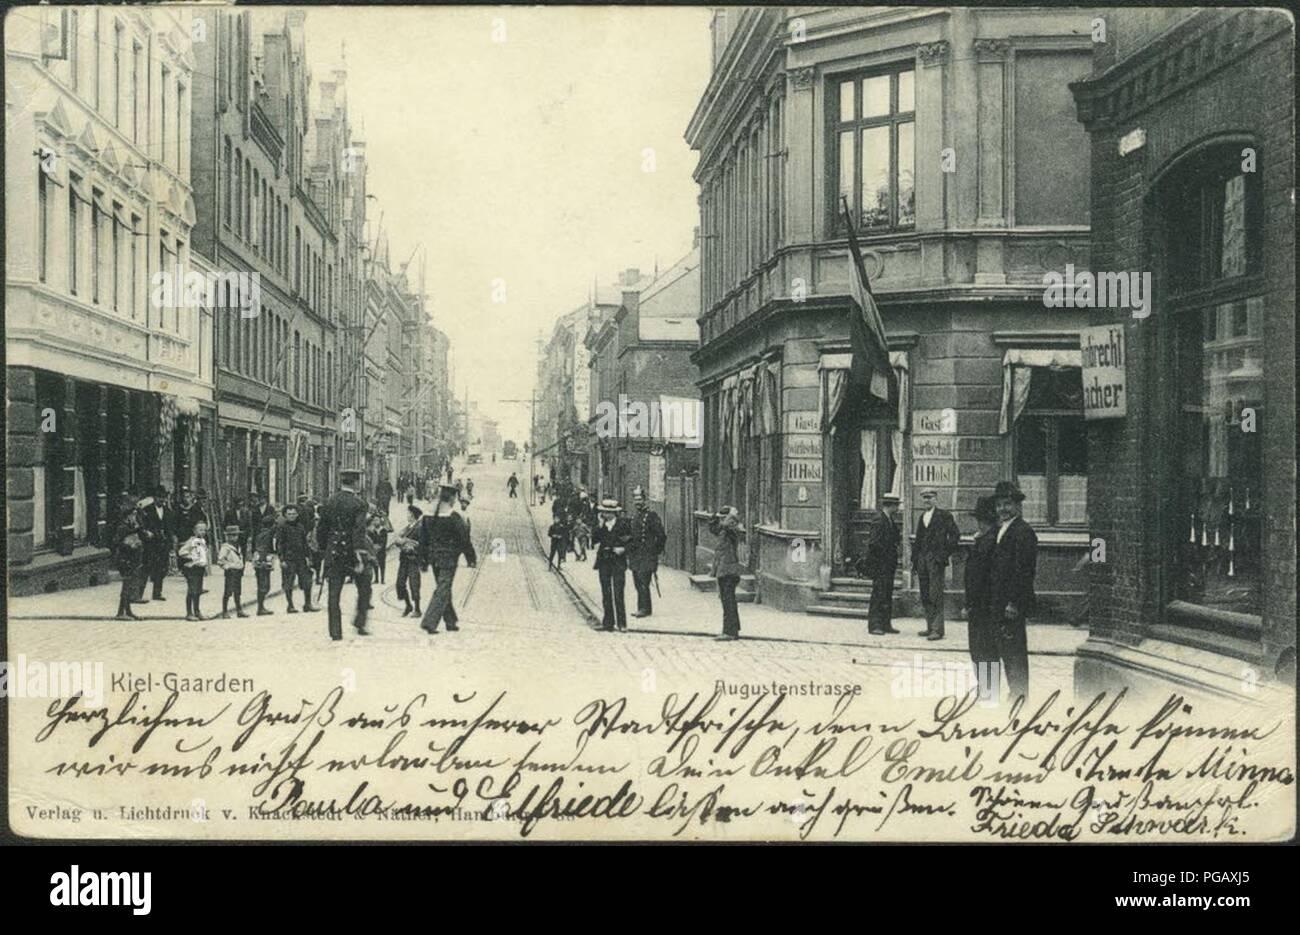 nbrecht
acher
Gast-
wirthschaft
H Holst
Gast-
wirthschaft
H Holst
Kiel-Gaarden
Augustenstrasse
Herzlichen Gruß aus unserer Stadtfrische, denn Landfrische können
wir uns nicht erlauben senden Dein Onkel Emil und Tante Minna
Paula und Elfriede lassen auch grüßen. Schönen Gruß an
Frieda
Verlag u. Lichtdruck v. Knackstedt & Näther, Hamburg
alamy
alamy
Image ID: PGAXJ5
www.alamy.com